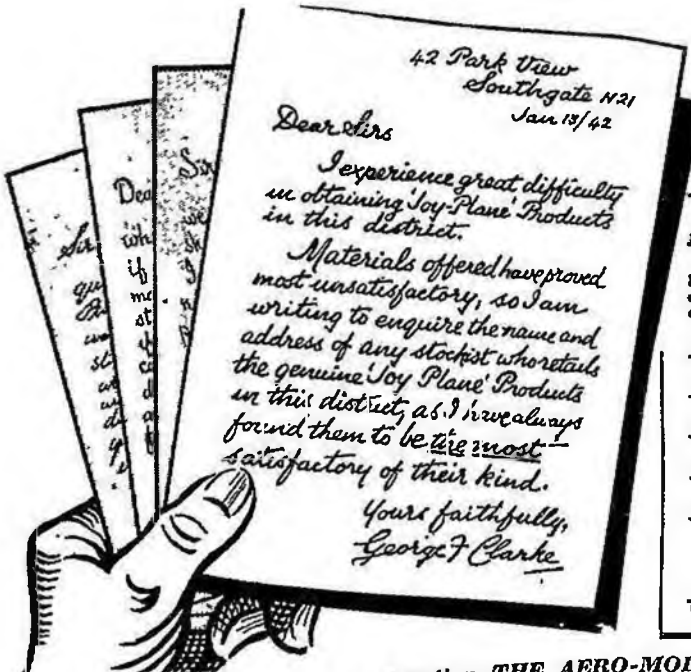 42 Park View
Southgate N21
Jan 13/42
Dear Sirs
I experience great difficulty
in obtaining 'Joy-Plane' Products
in this district.
Materials offered have proved
most unsatisfactory, so I am
writing to enquire the name and
address of any stockist who retails
the genuine 'Joy Plane' Products
in this district, as I have always
found them to be the most
satisfactory of their kind.
Yours faithfully,
George F Clarke
Sir
Dea
wh
if
Sir
THE AERO-MOD